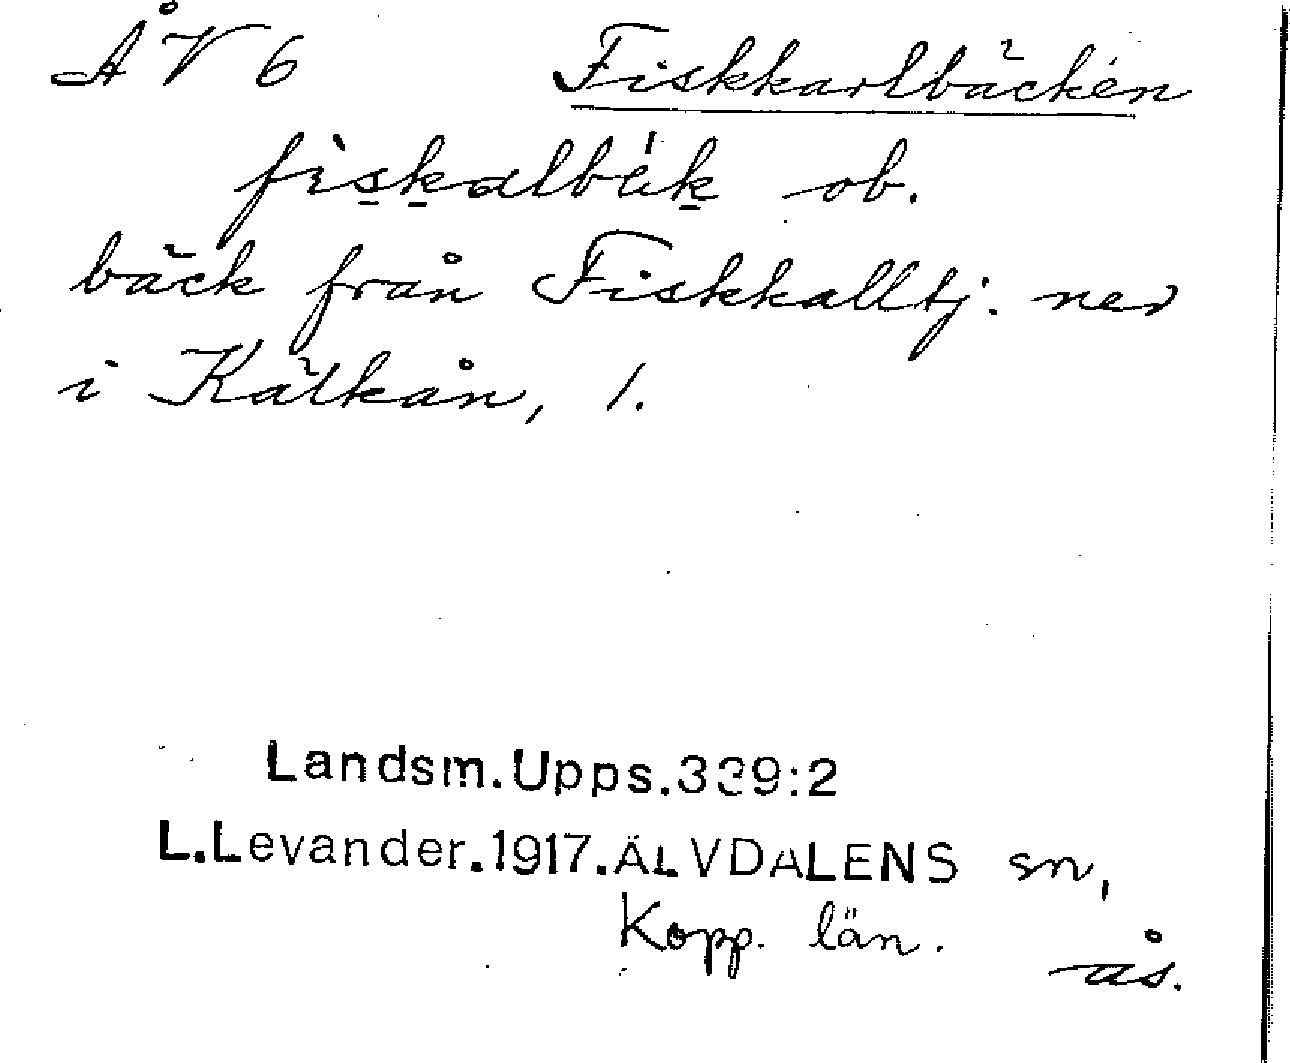 ÅV 6 Fiskkarlbäcken
fiskalbäk ob.
bäck från Fiskkalltj. ner
i Kätkån, 1.
Landsm.Upps.339:2
L.Levander.1917.ÄLVDALENS sn,
Kopp. län.
ås.